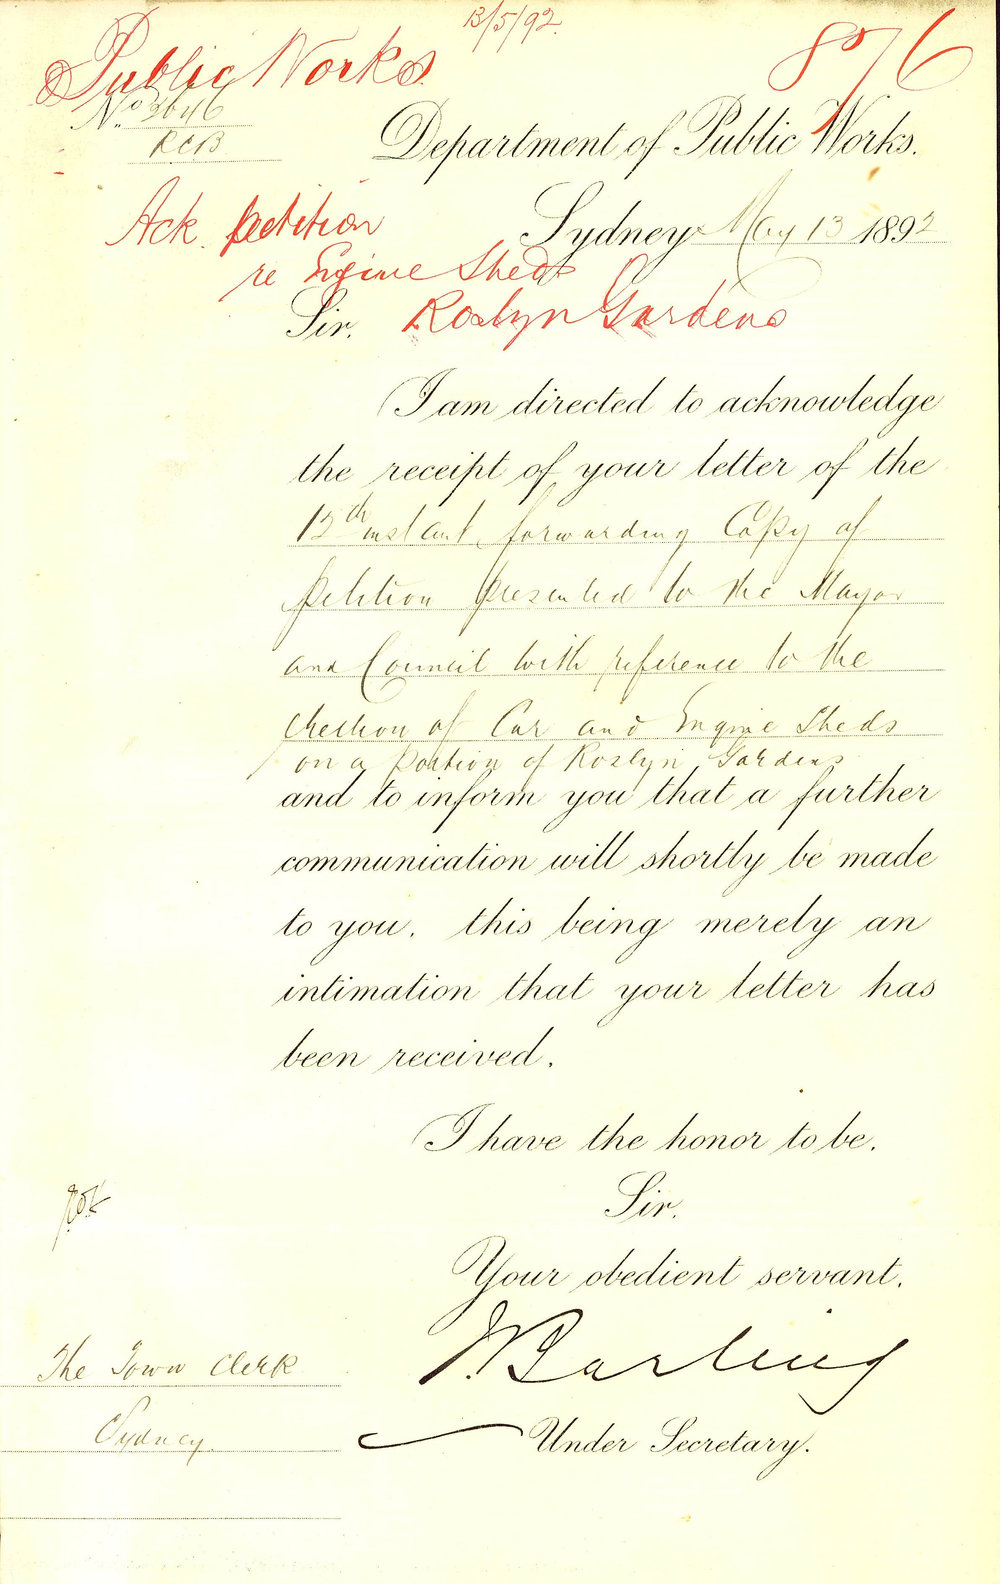 13/5/92.
Public Works.
876
No. 3646
RCB
Department of Public Works.
Ack. petition
Sydney May 13 1892
re Engine Sheds
Sir. Roslyn Gardens
I am directed to acknowledge
the receipt of your letter of the
12th instant, forwarding Copy of
Petition presented to the Mayor
and Council with reference to the
erection of Car and Engine Sheds
on a portion of Roslyn Gardens
and to inform you that a further
communication will shortly be made
to you, this being merely an
intimation that your letter has
been received.
I have the honor to be,
Sir,
Your obedient servant,
J. Barling
The Town Clerk
Sydney.
Under Secretary.